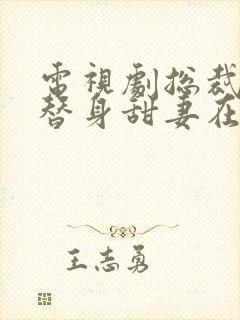 電視劇總裁
替身甜妻在
王志勇